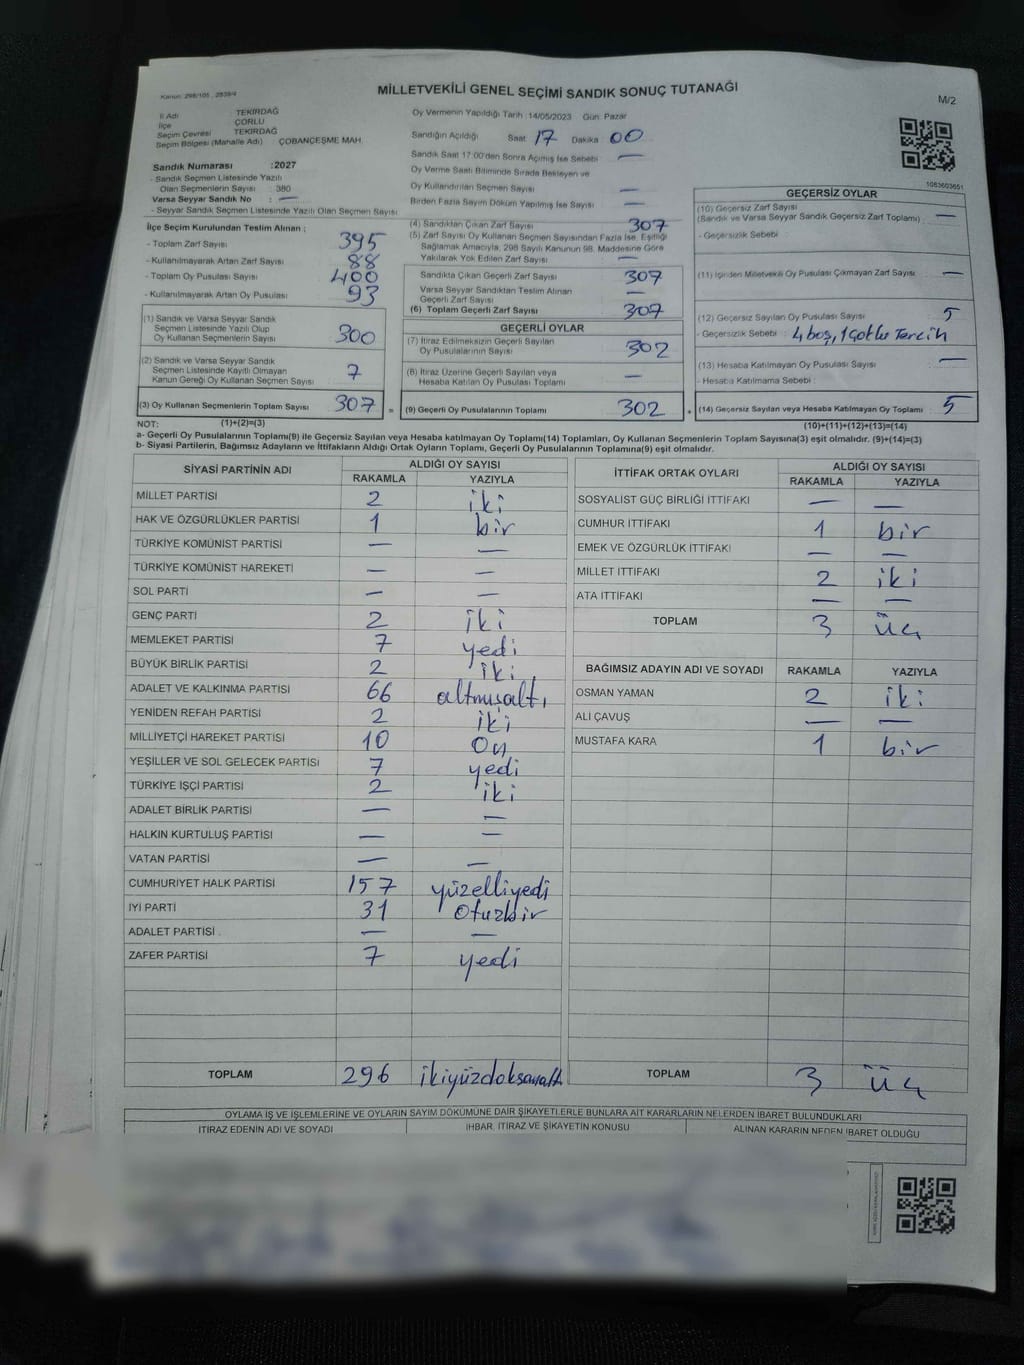 Kanun: 298/105 , 2839/4
MİLLETVEKİLİ GENEL SEÇİMİ SANDIK SONUÇ TUTANAĞI
M/2
İl Adı TEKİRDAĞ
İlçe ÇORLU
Seçim Çevresi TEKİRDAĞ
Seçim Bölgesi (Mahalle Adı) ÇOBANÇEŞME MAH
Sandık Numarası : 2027
- Sandık Seçmen Listesinde Yazılı
Olan Seçmenlerin Sayısı : 380
Varsa Seyyar Sandık No : —
- Seyyar Sandık Seçmen Listesinde Yazılı Olan Seçmen Sayısı
İlçe Seçim Kurulundan Teslim Alınan ;
- Toplam Zarf Sayısı 395
- Kullanılmayarak Artan Zarf Sayısı 88
- Toplam Oy Pusulası Sayısı 400
- Kullanılmayarak Artan Oy Pusulası 93
(1) Sandık ve Varsa Seyyar Sandık
Seçmen Listesinde Yazılı Olup
Oy Kullanan Seçmenlerin Sayısı 300
(2) Sandık ve Varsa Seyyar Sandık
Seçmen Listesinde Kayıtlı Olmayan
Kanun Gereği Oy Kullanan Seçmen Sayısı 7
(3) Oy Kullanan Seçmenlerin Toplam Sayısı 307 =
Oy Vermenin Yapıldığı Tarih : 14/05/2023 Gün: Pazar
Sandığın Açıldığı Saat 17 Dakika 00
Sandık Saat 17:00'den Sonra Açılmış İse Sebebi —
Oy Verme Saati Bitiminde Sırada Bekleyen ve
Oy Kullandırılan Seçmen Sayısı —
Birden Fazla Sayım Döküm Yapılmış İse Sayısı —
(4) Sandıktan Çıkan Zarf Sayısı 307
(5) Zarf Sayısı Oy Kullanan Seçmen Sayısından Fazla İse, Eşitliği
Sağlamak Amacıyla, 298 Sayılı Kanunun 98. Maddesine Göre
Yakılarak Yok Edilen Zarf Sayısı —
Sandıkta Çıkan Geçerli Zarf Sayısı 307
Varsa Seyyar Sandıktan Teslim Alınan
Geçerli Zarf Sayısı —
(6) Toplam Geçerli Zarf Sayısı 307
GEÇERLİ OYLAR
(7) İtiraz Edilmeksizin Geçerli Sayılan
Oy Pusulalarının Sayısı 302
(8) İtiraz Üzerine Geçerli Sayılan veya
Hesaba Katılan Oy Pusulası Toplamı —
(9) Geçerli Oy Pusulalarının Toplamı 302 +
1083603651
GEÇERSİZ OYLAR
(10) Geçersiz Zarf Sayısı
(Sandık ve Varsa Seyyar Sandık Geçersiz Zarf Toplamı) —
- Geçersizlik Sebebi :
(11) İçinden Milletvekili Oy Pusulası Çıkmayan Zarf Sayısı —
(12) Geçersiz Sayılan Oy Pusulası Sayısı 5
- Geçersizlik Sebebi : 4 boş, 1 çoklu Tercih
(13) Hesaba Katılmayan Oy Pusulası Sayısı —
- Hesaba Katılmama Sebebi :
(14) Geçersiz Sayılan veya Hesaba Katılmayan Oy Toplamı 5
NOT: (1)+(2)=(3) (10)+(11)+(12)+(13)=(14)
a- Geçerli Oy Pusulalarının Toplamı(9) ile Geçersiz Sayılan veya Hesaba katılmayan Oy Toplamı(14) Toplamları, Oy Kullanan Seçmenlerin Toplam Sayısına(3) eşit olmalıdır. (9)+(14)=(3)
b- Siyasi Partilerin, Bağımsız Adayların ve İttifakların Aldığı Oyların Toplamı, Geçerli Oy Pusulalarının Toplamına(9) eşit olmalıdır.
SİYASİ PARTİNİN ADI ALDIĞI OY SAYISI
RAKAMLA YAZIYLA
MİLLET PARTİSİ 2 iki
HAK VE ÖZGÜRLÜKLER PARTİSİ 1 bir
TÜRKİYE KOMÜNİST PARTİSİ — —
TÜRKİYE KOMÜNİST HAREKETİ — —
SOL PARTİ — —
GENÇ PARTİ 2 iki
MEMLEKET PARTİSİ 7 yedi
BÜYÜK BİRLİK PARTİSİ 2 iki
ADALET VE KALKINMA PARTİSİ 66 altmışaltı
YENİDEN REFAH PARTİSİ 2 iki
MİLLİYETÇİ HAREKET PARTİSİ 10 On
YEŞİLLER VE SOL GELECEK PARTİSİ 7 yedi
TÜRKİYE İŞÇİ PARTİSİ 2 iki
ADALET BİRLİK PARTİSİ — —
HALKIN KURTULUŞ PARTİSİ — —
VATAN PARTİSİ — —
CUMHURİYET HALK PARTİSİ 157 yüzelliyedi
İYİ PARTİ 31 Otuzbir
ADALET PARTİSİ — —
ZAFER PARTİSİ 7 yedi
TOPLAM 296 ikiyüzdoksanaltı
İTTİFAK ORTAK OYLARI ALDIĞI OY SAYISI
RAKAMLA YAZIYLA
SOSYALİST GÜÇ BİRLİĞİ İTTİFAKI — —
CUMHUR İTTİFAKI 1 bir
EMEK VE ÖZGÜRLÜK İTTİFAKI — —
MİLLET İTTİFAKI 2 iki
ATA İTTİFAKI — —
TOPLAM 3 üç
BAĞIMSIZ ADAYIN ADI VE SOYADI RAKAMLA YAZIYLA
OSMAN YAMAN 2 iki
ALİ ÇAVUŞ — —
MUSTAFA KARA 1 bir
TOPLAM 3 üç
OYLAMA İŞ VE İŞLEMLERİNE VE OYLARIN SAYIM DÖKÜMÜNE DAİR ŞİKAYETLERLE BUNLARA AİT KARARLARIN NELERDEN İBARET BULUNDUKLARI
İTİRAZ EDENİN ADI VE SOYADI İHBAR, İTİRAZ VE ŞİKAYETİN KONUSU ALINAN KARARIN NEDEN İBARET OLDUĞU